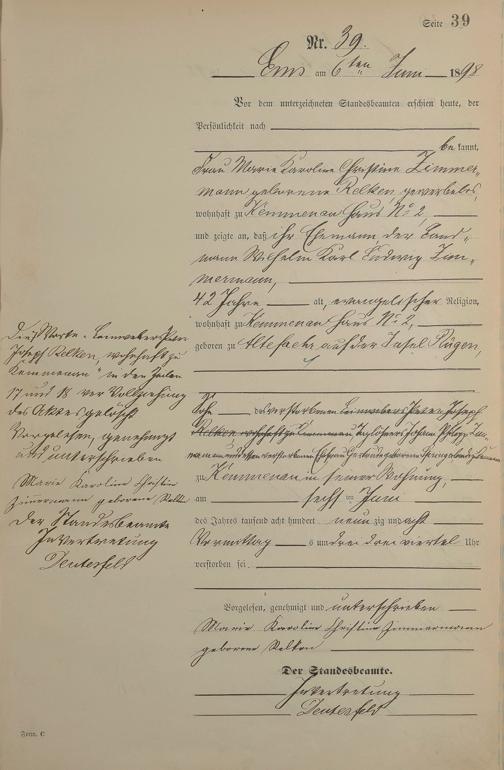 Seite 39
Nr. 39.
Ems am 6ten Juni 1898
Vor dem unterzeichneten Standesbeamten erschien heute, der
Persönlichkeit nach
be kannt,
Frau Marie Karoline Christine Zimmer-
mann geborene Relken, gewerbelos,
wohnhaft zu Kemmenau Haus No 2,
und zeigte an, daß ihr Ehemann der Land-
mann Wilhelm Karl Ludwig Zim-
mermann,
42 Jahre alt, evangelischer Religion,
wohnhaft zu Kemmenau Haus No 2,
geboren zu Altefaehr auf der Insel Rügen,
Sohn des verstorbenen Leinwebers Peter Joseph
Relken wohnhaft zu Kemmenau Taglöhners Johann Zim-
mermann und dessen verstorbenen Ehefrau
zu Kemmenau in seiner Wohnung,
am sechsten Juni
des Jahres tausend acht hundert neun zig und acht
Vormittag s um drei drei viertel Uhr
verstorben sei.
Vorgelesen, genehmigt und unterschrieben
Marie Karoline Christine Zimmermann
geborene Relken
Der Standesbeamte.
In Vertretung
Deutesfeld
Die Worte: Leinwebers Peter
Joseph Relken, wohnhaft zu
Kemmenau" in den Zeilen
17 und 18 vor Vollziehung
des Aktes gelöscht
Vorgelesen, genehmigt
und unterschrieben
Marie Karoline Christin
Zimmermann geborene Relken
Der Standesbeamte
In Vertretung
Deutesfeld
Form. C